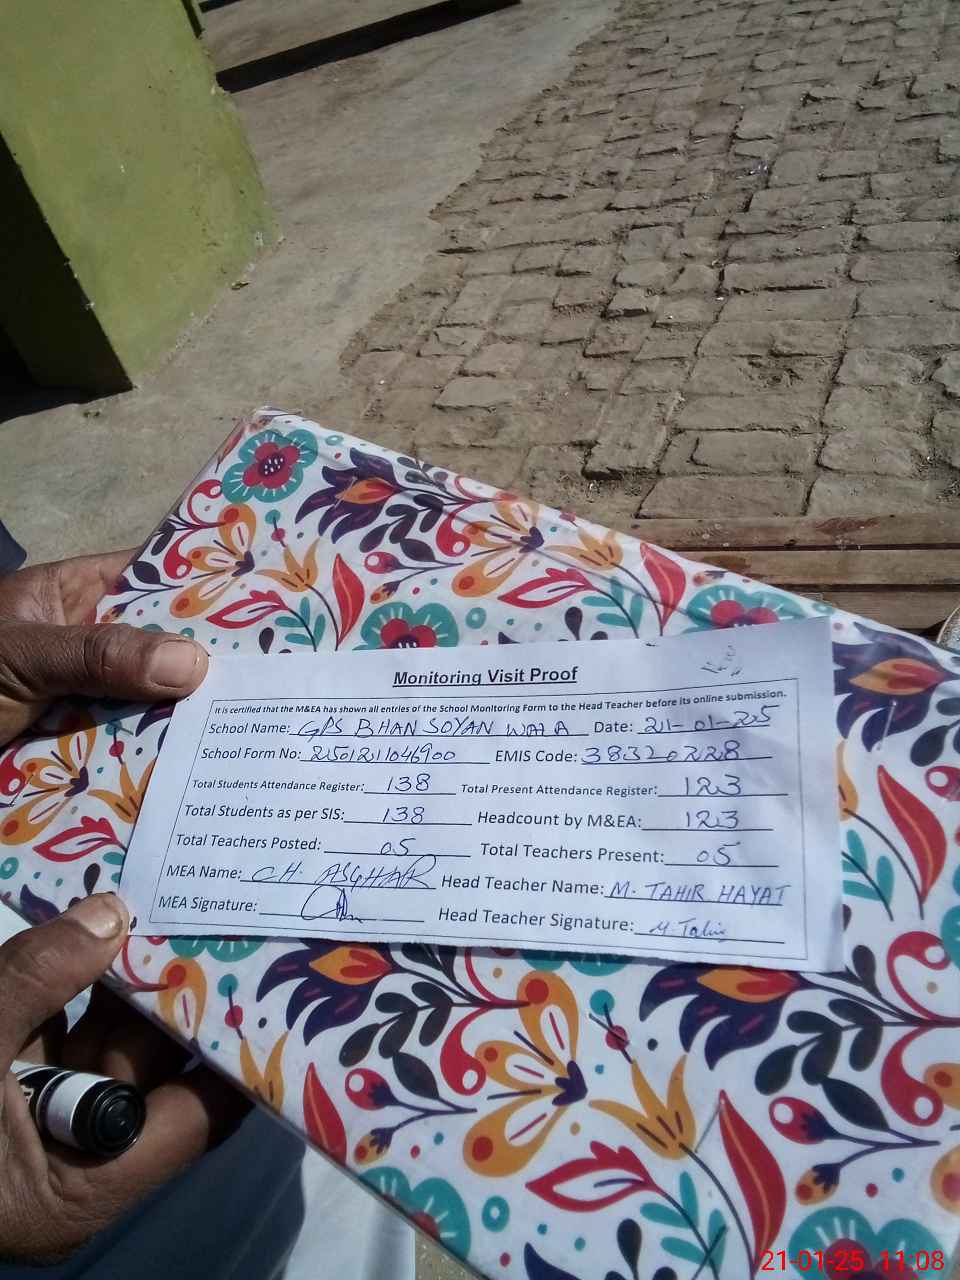 Monitoring Visit Proof
It is certified that the M&EA has shown all entries of the School Monitoring Form to the Head Teacher before its online submission.
School Name: GPS BHANSOYAN WALA Date: 21-01-25
School Form No: 2501211046900 EMIS Code: 38320228
Total Students Attendance Register: 138 Total Present Attendance Register: 123
Total Students as per SIS: 138 Headcount by M&EA: 123
Total Teachers Posted: 05 Total Teachers Present: 05
MEA Name: CH. ASGHAR Head Teacher Name: M. TAHIR HAYAT
MEA Signature: Head Teacher Signature: M. Tahir
21-01-25 11:08